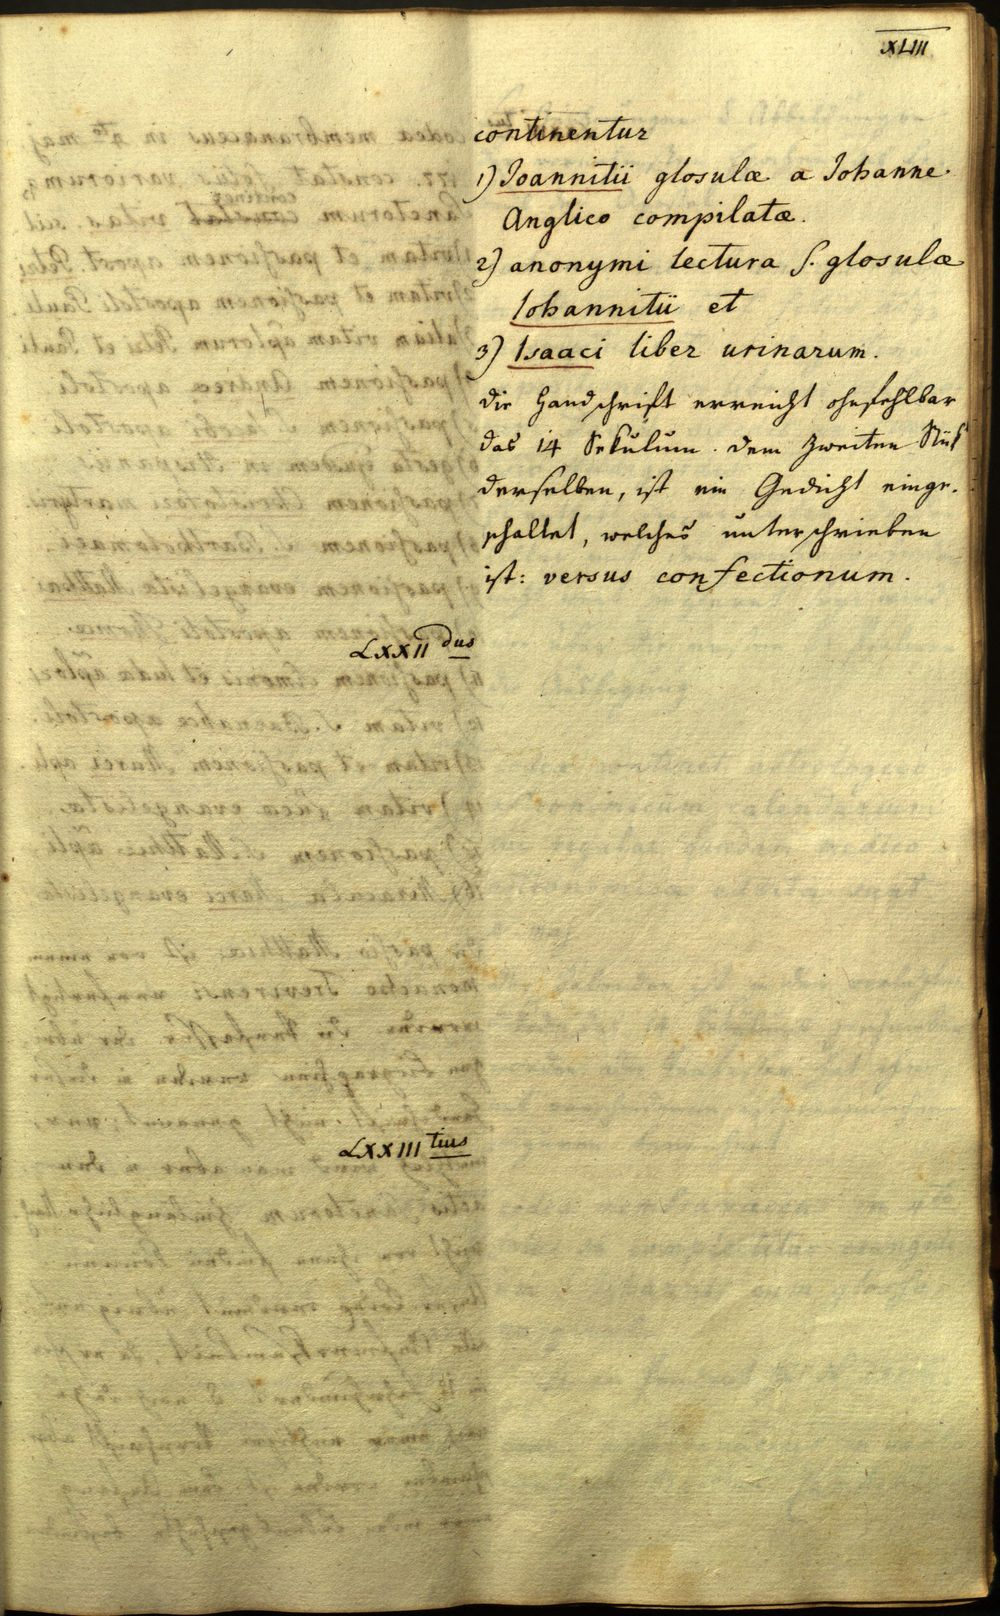 XLIII
continentur
1) Joannitii glosulæ a Johanne
Anglico compilatæ.
2) anonymi lectura s. glosulæ
Johannitii et
3) Isaaci liber urinarum.
die Handschrift erreicht ohnfehlbar
das 14 Sekulum. dem zweiten Stük
derselben, ist ein Gedicht einge-
schaltet, welches unterschrieben
ist: versus confectionum.
LXXII dus
LXXIII tius